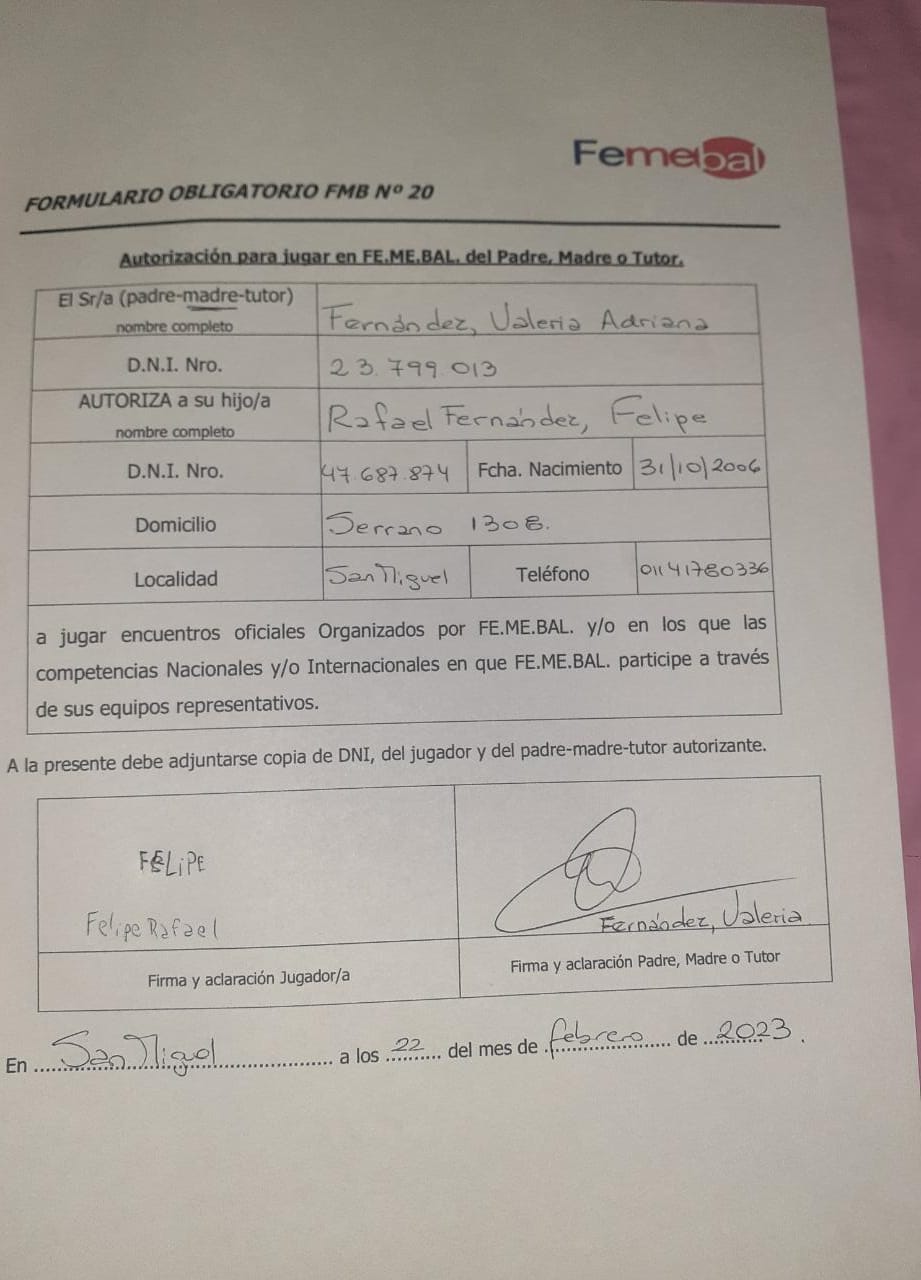 Femebal
FORMULARIO OBLIGATORIO FMB Nº 20
Autorización para jugar en FE.ME.BAL. del Padre, Madre o Tutor.
El Sr/a (padre-madre-tutor)
nombre completo
Fernández, Valeria Adriana
D.N.I. Nro.
23.799.013
AUTORIZA a su hijo/a
nombre completo
Rafael Fernández, Felipe
D.N.I. Nro.
47.687.874
Fcha. Nacimiento
31/10/2006
Domicilio
Serrano 1308.
Localidad
San Miguel
Teléfono
01141780336
a jugar encuentros oficiales Organizados por FE.ME.BAL. y/o en los que las
competencias Nacionales y/o Internacionales en que FE.ME.BAL. participe a través
de sus equipos representativos.
A la presente debe adjuntarse copia de DNI, del jugador y del padre-madre-tutor autorizante.
FELiPE
Felipe Rafael
Fernández, Valeria
Firma y aclaración Jugador/a
Firma y aclaración Padre, Madre o Tutor
En San Miguel a los 22 del mes de febrero de 2023.